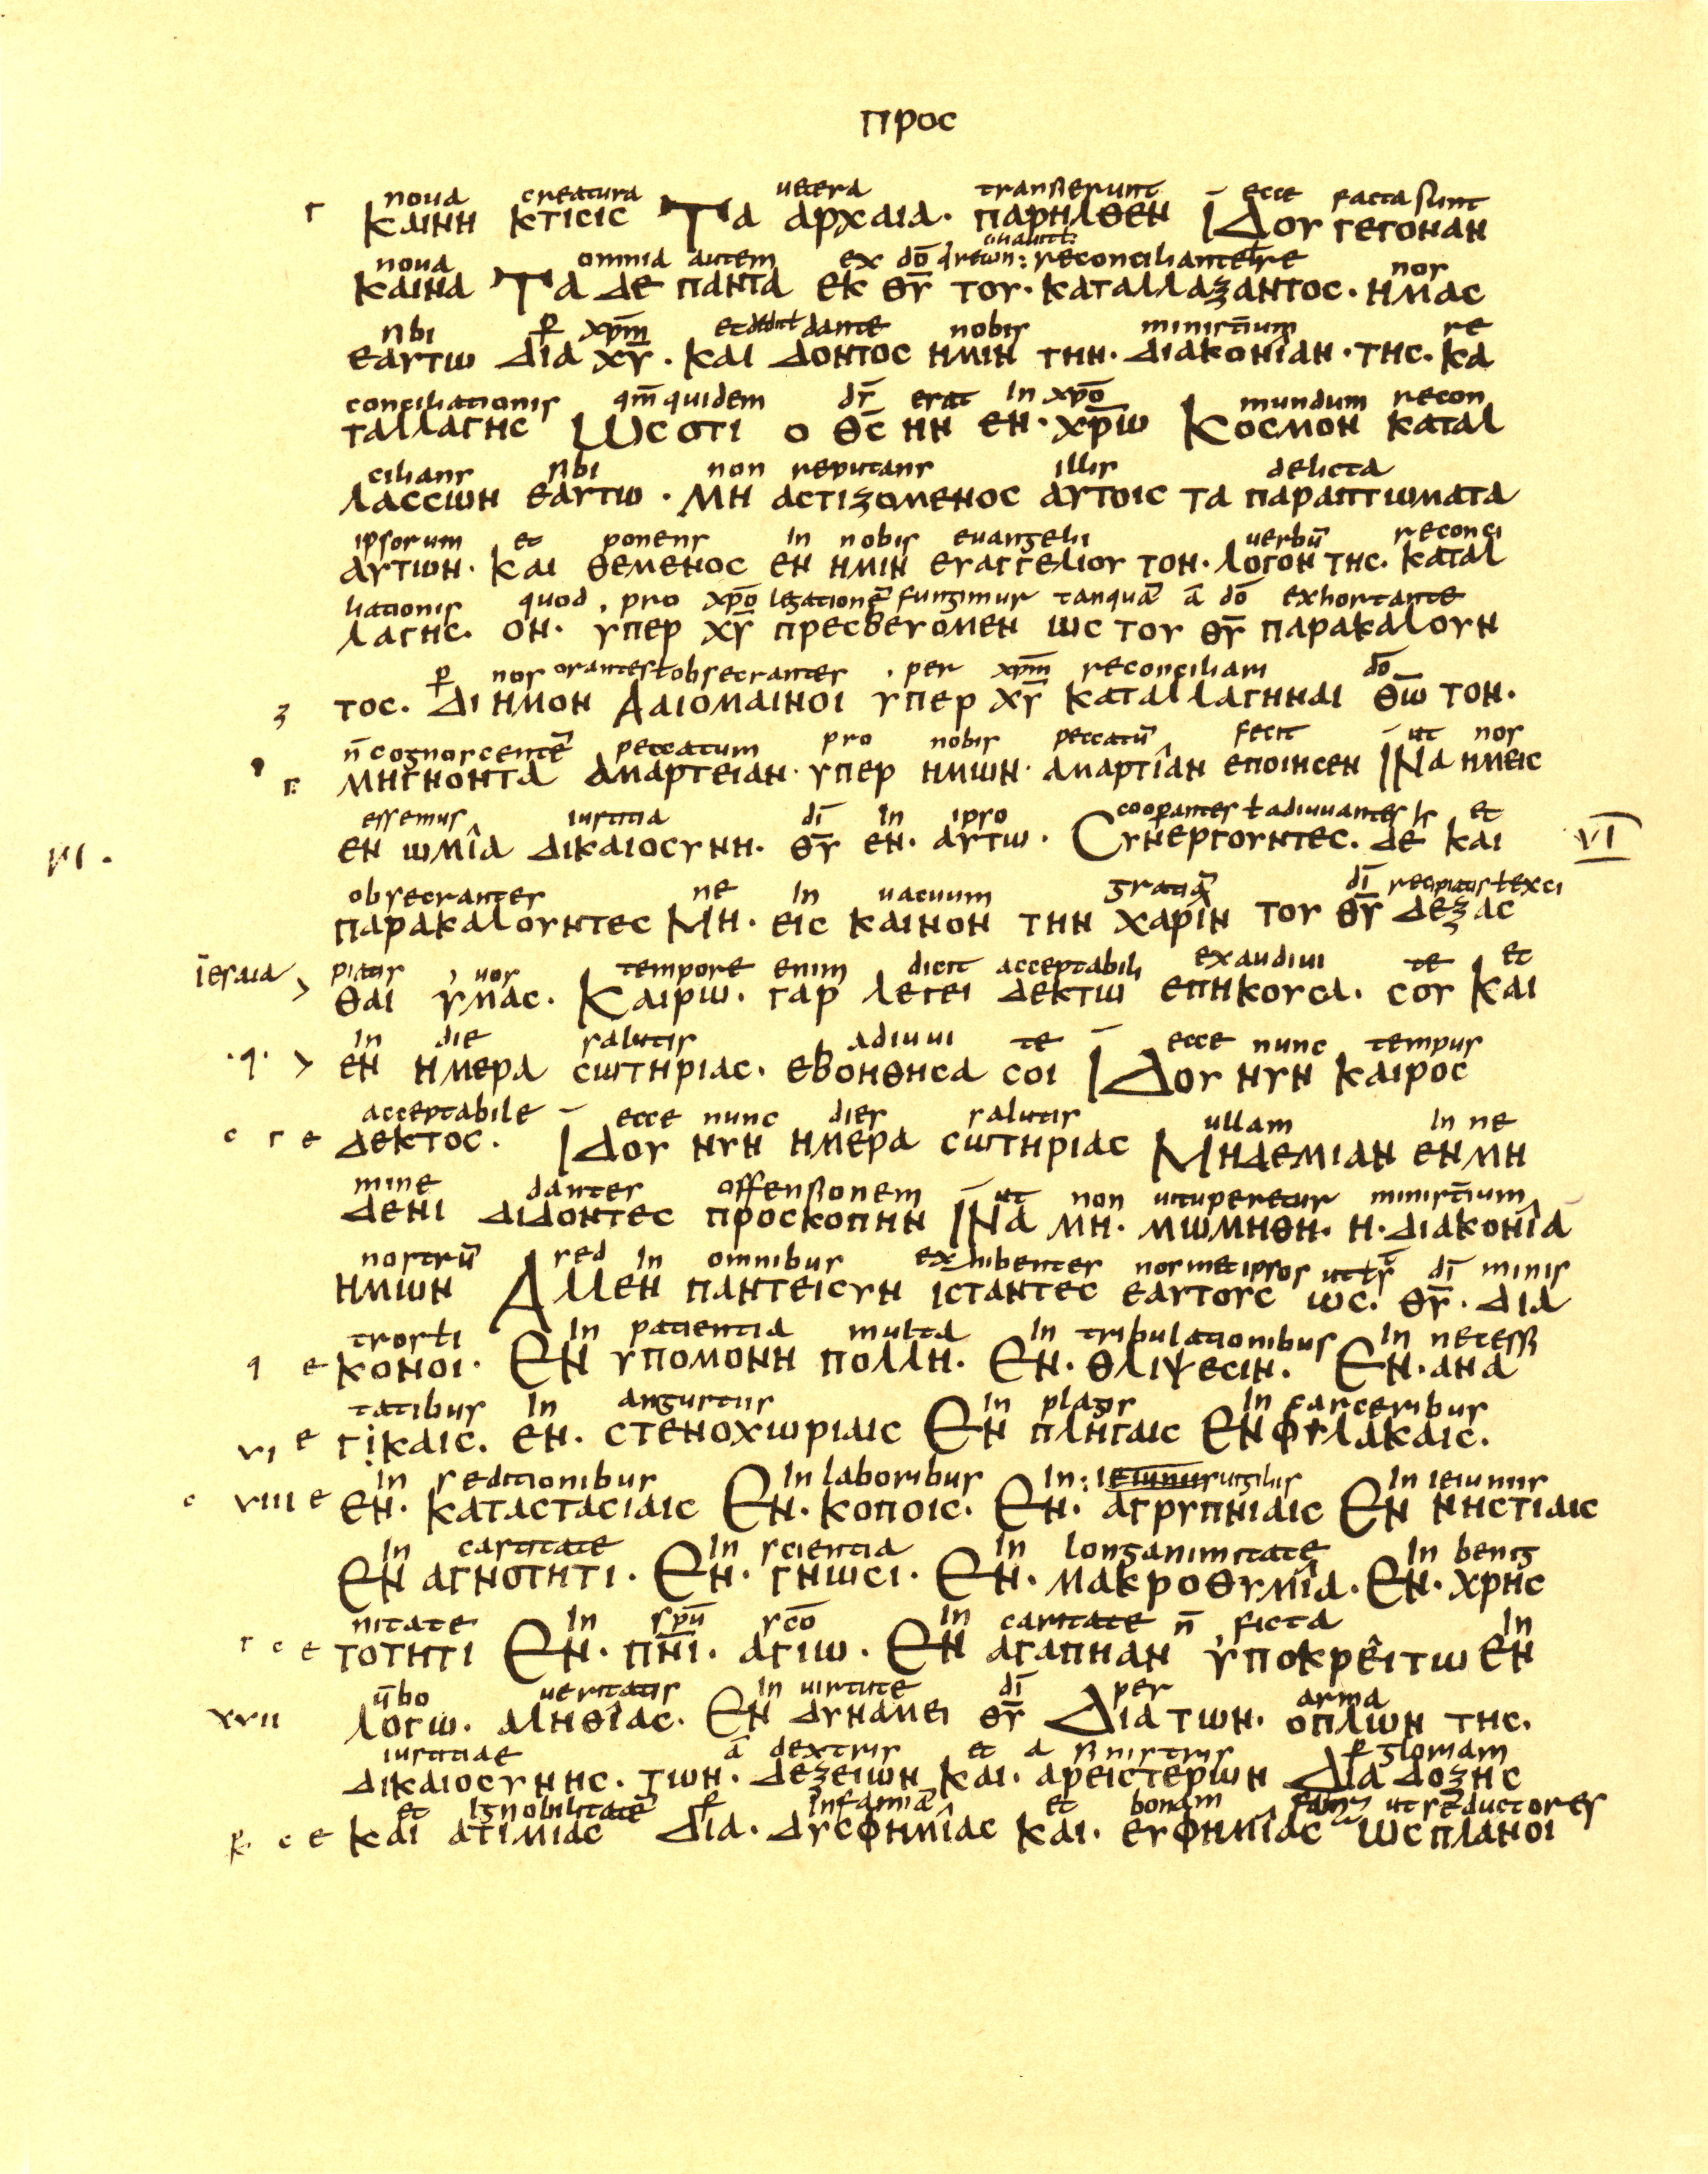 προс
noua creatura uetera transierunt ecce facta sunt
г καινη κτιсιс Τα αρχαια· παρηλθεν Ιδου γεγοναν
noua omnia autem ex dō reconciliante nos
καινα Τα δε παντα εκ θ̅υ̅ του· καταλλαξαντοс· ημαс
sibi ꝑ xp̅m̅ et dedit dante nobis ministr̅ium re
εαυτω δια χ̅υ̅· και δοντοс ημιν την· διακονιαν· τηс· κα
conciliationis qm̅ quidem d̅s̅ erat in xp̅o̅ mundum recon
ταλλαγηс Ωс οτι ο θ̅с̅ ην εν· χ̅ρ̅ω̅ Κοсμον καταλ
cilians sibi non reputans illis delicta
λαссων εαυτω· Μη αсτιζομενοс αυτοιс τα παραπτωματα
ipsorum et ponens in nobis euangelii uerbū reconci
αυτων· Και θεμενοс εν ημιν ευαγγελιου τον· λογον τηс· καταλ
liationis quod, pro xp̅o̅ legationē fungimur tanquā ā dō exhortante
λαγηс· ον· υπερ χ̅υ̅ πρεсβευομεν ωс του θ̅υ̅ παρακαλουν
ꝑ nos orantes ł obsecrantes · per xp̅m̅ reconciliari dō
ζ τοс· Δι ημον Δαιομαινοι υπερ χ̅υ̅ καταλλαγηναι θ̅ω̅ τον·
n̅ cognoscentē peccatum pro nobis peccatū fecit ut nos
μηγνοντα αμαρτειαν· υπερ ημων· αμαρτιαν εποιηсεν ΙΝα ημειс
essemus iustitia di̅ in ipso cooperantes ł adiuuantes et
VI· εν ωμια δικαιοсυνη· θ̅υ̅ εν· αυτω· Сυνεργουντεс· δε και VI
obsecrantes ne in uacuum gratiā di̅ recipiatis ł exci
παρακαλουντεс Μη· ειс καινον την χαριν του θ̅υ̅ δεξαс
iesaia piatis uos tempore enim dicit acceptabili exaudiui te et
> θαι υμαс· Καιρω· γαρ λεγει δεκτω επηκουсα· сου και
in die salutis adiuui te ecce nunc tempus
·q· > εν ημερα сωτηριαс· εβοηθηсα сοι Ιδου νυν καιροс
acceptabile ecce nunc dies salutis ullam in ne
с г ε δεκτοс· Ιδου νυν ημερα сωτηριαс Μηδεμιαν εν μη
mine dantes offensionem ut non uituperetur ministr̅ium
δενι διδοντεс προсκοπην ΙΝα μη· μωμηθη· η· διακονια
nostrū sed in omnibus exhibentes nosmetipsos di̅ minis
ημων Αλλεν παντειсυν ιсταντεс εαυτουс ωс· θ̅υ̅· δια
in patientia multa in tribulationibus in necessi
q ε κονοι· Εν υπομονη πολλη· Εν· θλιψεсιν· Εν· ανα
tatibus in angustiis in plagis in carceribus
VI ε γικαιс· εν· сτενοχωριαιс Εν πληγαιс Εν φυλακαιс·
in seditionibus in laboribus in: ieiuniis uigiliis in ieiuniis
с VIII ε εν· καταсταсιαιс Εν· κοποιс· Εν· αγρυπνιαιс Εν νηсτιαιс
in castitate in scientia in longanimitate in benig
Εν αγνοτητι· Εν· γνωсι· Εν· μακροθυμια· Εν· χρηс
nitate in sp̅u̅ sc̅o̅ in caritate n̅ ficta in
г с ε τοτητι Εν· π̅ν̅ι̅· αγιω· Εν αγαπηαν υποκρειτω εν
u̅bo ueritatis in uirtute di̅ per arma
XVII λογω· αληθιαс· Εν δυναμει θ̅υ̅ Δια των· οπλων τηс·
iustitiae ā dextris et a sinistris ꝑ gloriam
δικαιοсυνηс· των· δεξειων και· αρειсτερων Δια δοξηс
et ignobilitatē ꝑ infamiā et bonam famā ut seductores
с ε και ατιμιαс δια· δυсφημιαс και· ευφημιαс ωс πλανοι